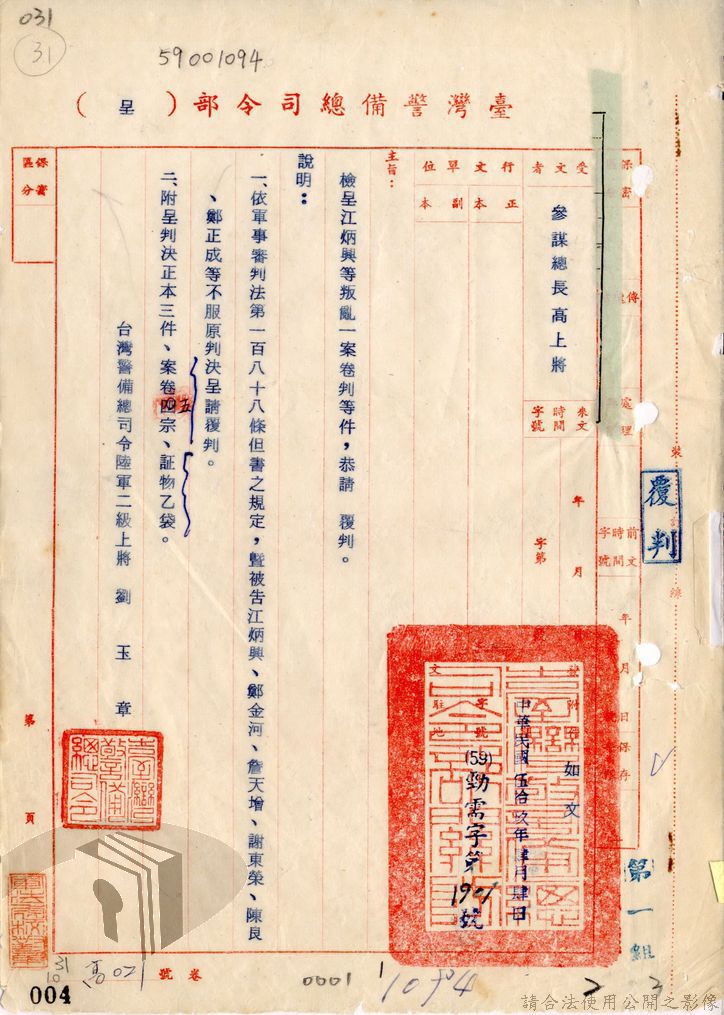 031
31
59001094
臺灣警備總司令部（呈）
保密
區分
受文者
參謀總長高上將
行文單位
正本
副本
來文
時間
字號
年月
字第
前文
時間
字號
年月日保存
傳
處理
裝
線
覆判
附件
如文
發文
中華民國伍拾玖年肆月肆日
字號
(59)勁需字第1901號
駐地
主旨：
檢呈江炳興等叛亂一案卷判等件，恭請 覆判。
說明：
一、依軍事審判法第一百八十八條但書之規定，暨被告江炳興、鄭金河、詹天增、謝東榮、陳良
、鄭正成等不服原判決呈請覆判。
二、附呈判決正本三件、案卷四宗、証物乙袋。
五
台灣警備總司令陸軍二級上將 劉玉章
臺灣警備總司令
第 頁
第一組
卷號
0001
1
004
請合法使用公開之影像